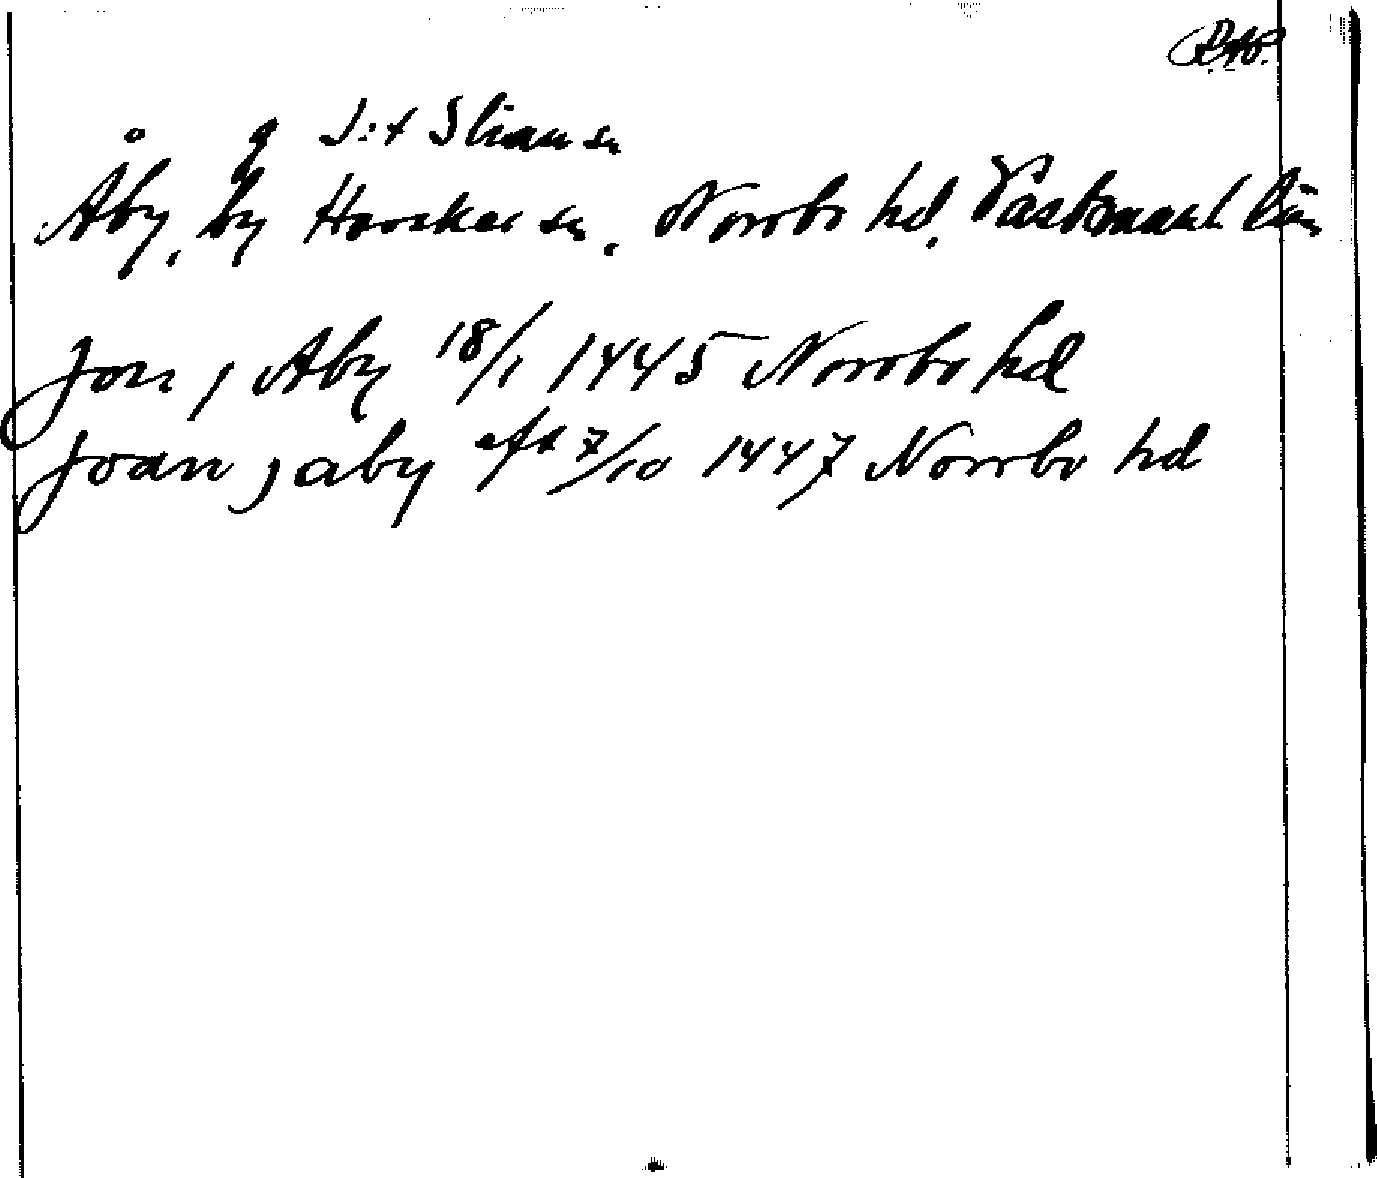 g S:t Ilian sn
Åby, by Haraker sn, Norrbo hd, Västmanl län
Jon j Aby 18/1 1445 Norrbo hd
Joan j aby eft 7/10 1447 Norrbo hd